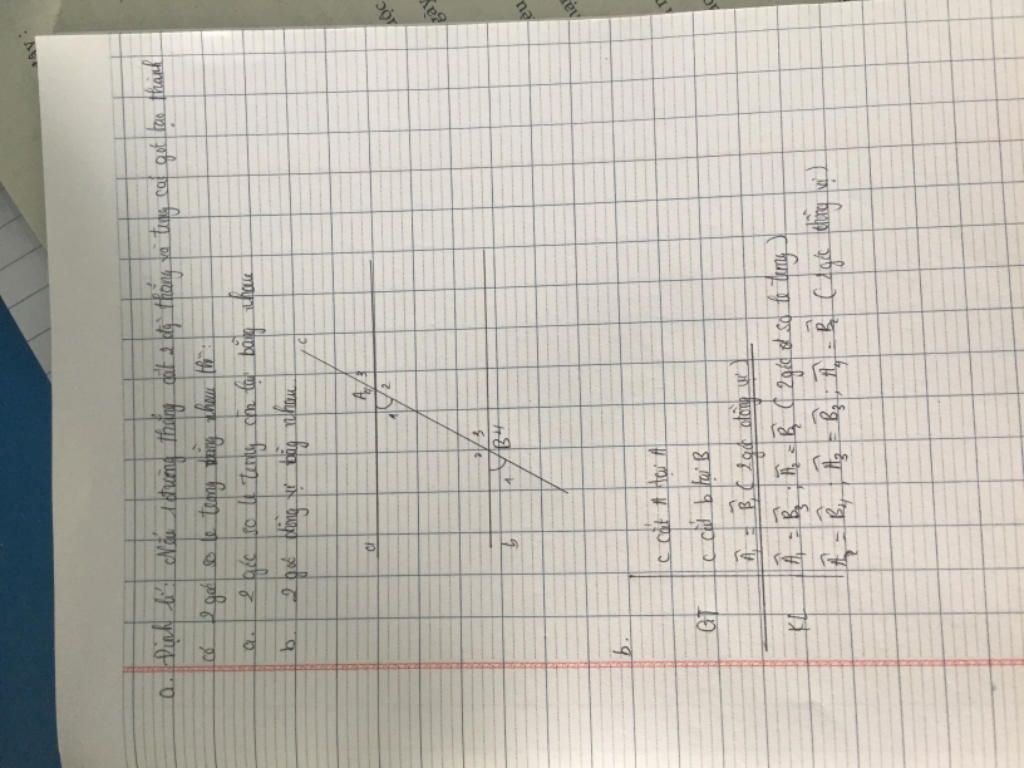 a. Định lí: Nếu 1 đường thẳng cắt 2 đg` thẳng và trong các góc tạo thành
có 2 góc so le trong bằng nhau thì:
a. 2 góc so le trong còn lại bằng nhau
b. 2 góc đồng vị bằng nhau
c
a
A 3
1 2
2 3
1 B 4
b
b.
GT
c cắt A tại A
c cắt b tại B
A1 = B1 ( 2 góc đồng vị )
KL
A1 = B3 ; A2 = B2 ( 2 góc so le trong )
A2 = B4 ; A3 = B3 ; A4 = B2 ( 2 góc đồng vị )